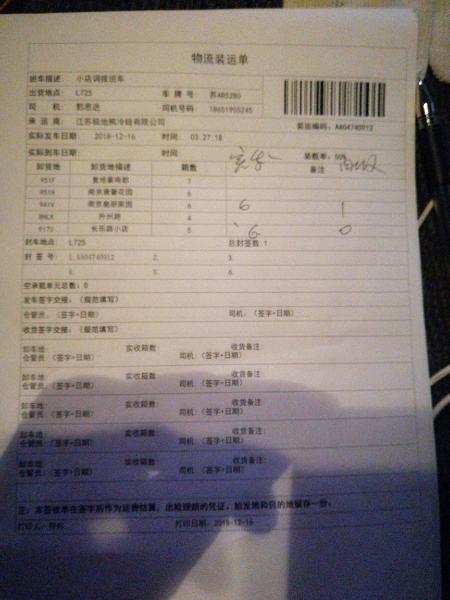 物流装运单
班车描述 小店调拨班车
出货地点: L725 车 牌 号: 苏AR5280
司 机: 郭思进 司机号码: 18651905245
承 运 商: 江苏极地熊冷链有限公司 装运编码: AA04740912
实际发车日期: 2018-12-16 时间: 03:27:18
实际到车日期: 时间: 装载率: 50%
卸货地 卸货地描述 箱数 实发 备注
951F 7
951H 南京唐馨花园 6
941V 南京皇册家园 6 6 1
升州路 4
917G 长乐路小店 5 6 0
封车地点: L725 总封签数:1
封 签 号: 1.AA04740912 2. 3.
4. 5. 6.
空承载单元总数: 0
发车签字交接: (规范填写)
仓管员: (签字+日期) 司机: (签字+日期)
收货签字交接: (规范填写)
卸车地: 实收箱数: 收货备注:
仓管员: (签字+日期) 司机: (签字+日期)
卸车地: 实收箱数: 收货备注:
仓管员: (签字+日期) 司机: (签字+日期)
卸车地: 实收箱数: 收货备注:
仓管员: (签字+日期) 司机: (签字+日期)
卸车地: 实收箱数: 收货备注:
仓管员: (签字+日期) 司机: (签字+日期)
卸车地: 实收箱数: 收货备注:
仓管员: (签字+日期) 司机: (签字+日期)
注: 本签收单在签字后作为运费结算, 出险理赔的凭证, 始发地和目的地留存一份.
打印人: 打印日期: 2018-12-16